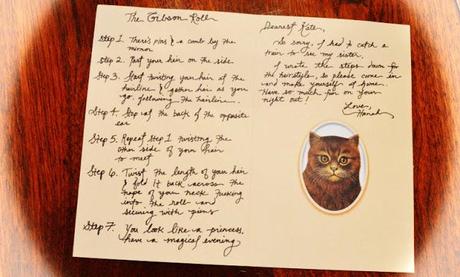 The Gibson Roll
Step 1. There's pins & a comb by the
mirror
Step 2. Part your hair on the side.
Step 3. Start twisting your hair at the
hairline & gather hair as you
go, following the hairline.
Step 4. Stop at the back of the opposite
ear
Step 5. Repeat Step 1 twisting the
other side of your hair
to meet
Step 6. Twist the length of your hair
& fold it back across the
nape of your neck tucking
into the roll and
securing with pins
Step 7. You look like a princess,
have a magical evening
Dearest Kate,
So sorry, I had to catch a
train to see my sister.
I wrote the steps down for
the hairstyle, so please come in
and make yourself at home.
Have so much fun on your
night out!
Love,
Hannah